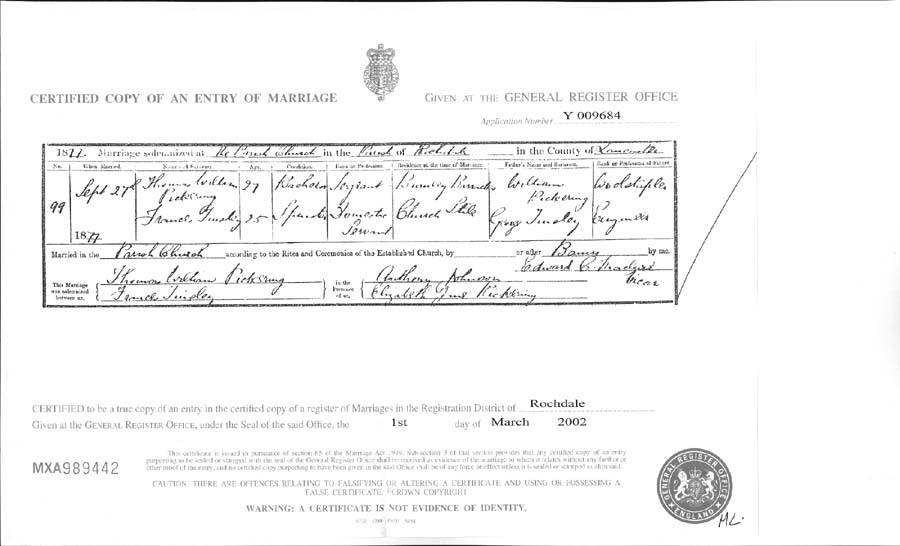 CERTIFIED COPY OF AN ENTRY OF MARRIAGE
GIVEN AT THE GENERAL REGISTER OFFICE
Application Number Y 009684
1877. Marriage solemnized at the Parish Church in the Parish of Rochdale in the County of Lancaster
No. When Married. Name and Surname. Age. Condition. Rank or Profession. Residence at the time of Marriage. Father's Name and Surname. Rank or Profession of Father
99 Sept 27th 1877 Thomas William Pickering 27 Bachelor Sergeant Burnley Barracks William Pickering Woolstapler
Frances Tinsley 25 Spinster Domestic Servant Church Stile George Tinsley
Married in the Parish Church according to the Rites and Ceremonies of the Established Church, by or after Banns by me,
Edward C. Vicar
This Marriage was solemnized between us, Thomas William Pickering in the Presence of us, Anthony Johnson
Frances Tinsley Elizabeth Jane Pickering
CERTIFIED to be a true copy of an entry in the certified copy of a register of Marriages in the Registration District of Rochdale
Given at the GENERAL REGISTER OFFICE, under the Seal of the said Office, the 1st day of March 2002
MXA989442
This certificate is issued in pursuance of section 65 of the Marriage Act 1949. Sub-section 3 of that section provides that any certified copy of an entry
purporting to be sealed or stamped with the seal of the General Register Office shall be received as evidence of the marriage to which it relates without any further or
other proof of the entry, and no certified copy purporting to have been given in the said Office shall be of any force or effect unless it is sealed or stamped as aforesaid.
CAUTION: THERE ARE OFFENCES RELATING TO FALSIFYING OR ALTERING A CERTIFICATE AND USING OR POSSESSING A
FALSE CERTIFICATE. ©CROWN COPYRIGHT
WARNING: A CERTIFICATE IS NOT EVIDENCE OF IDENTITY.
GENERAL REGISTER OFFICE
ENGLAND
ML.